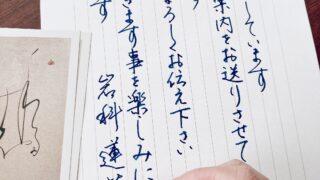 しています
案内をお送りさせて
よろしくお伝え下さい
きます事を楽しみに
す
岩科蓮